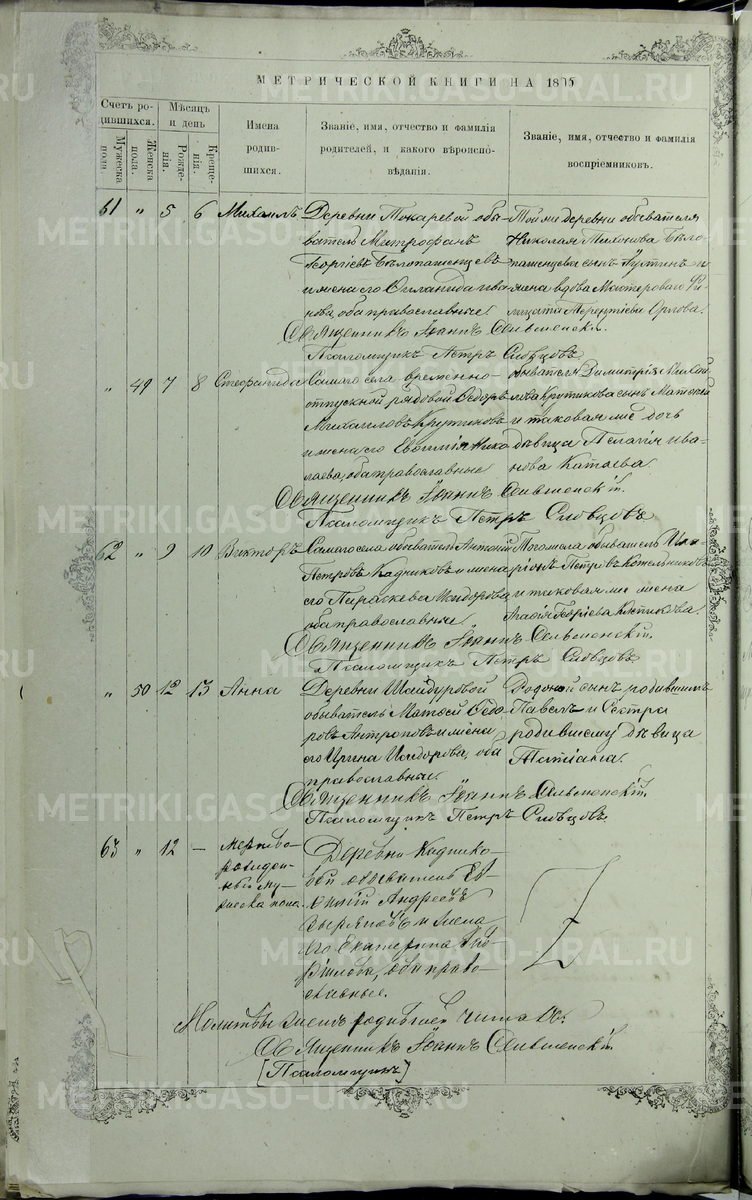 МЕТРИЧЕСКОЙ КНИГИ НА 18
Счетъ ро-
дившихся.
Мѣсяцъ
и день
Мужеска
пола.
Женска
пола.
Рожде-
нія.
Креще-
нія.
Имена
родив-
шихся.
Званіе, имя, отчество и фамилія
родителей, и какого вѣроиспо-
вѣданія.
Званіе, имя, отчество и фамилія
воспріемниковъ.
61 " 5 6 Михаилъ
Деревни Токаревой обы-
ватель Митрофанъ
Георгіевъ Бѣлопашенцевъ
и жена его Ива-
нова, оба православные.
Той же деревни обывателя
Николая Бѣло-
пашенцева сынъ Іустинъ и
жена вдова Мастероваго
Терентіева Орлова.
Священникъ Іоаннъ
Псаломщикъ Петръ Словцовъ
" 49 7 8 Стефанида
Самаго села временно-
отпускной рядовой Ѳедоръ
Михаиловъ Крутиковъ
и жена его Евгенія Нико-
лаева, оба православные
обывателя Димитрія Михай-
лова Крутикова сынъ Матѳей
и таковая же дочь
дѣвица Пелагія Ива-
нова Катаева.
Священникъ Іоаннъ
Псаломщикъ Петръ Словцовъ
62 " 9 10 Викторъ
Самаго села обыватель Антоній
Петровъ Кадниковъ и жена
его Параскева Исидорова
оба православные.
Того же села обыватель Ила-
ріонъ Петровъ Котельниковъ
и таковая же жена
Агаѳія Георгіева
Священникъ Іоаннъ
Псаломщикъ Петръ Словцовъ
" 50 12 13 Анна
Деревни Шайдуровой
обыватель Матѳей Ѳедо-
ровъ Антроповъ и жена
его Ирина Исидорова, оба
православные.
Родной сынъ родившимъ
Павелъ и Сестра
родившему дѣвица
Татіана.
Священникъ Іоаннъ
Псаломщикъ Петръ Словцовъ
63 " 12 — Мертво-
рожден-
ный му-
жеска пола.
Деревни Каднико-
вой обыватель Ев-
Андреевъ
и жена
его Екатерина Гав-
рилова, оба право-
славные.
Молитвы родившей читалъ
Священникъ Іоаннъ
[Псаломщикъ]
METRIKI.GASO-URAL.RU